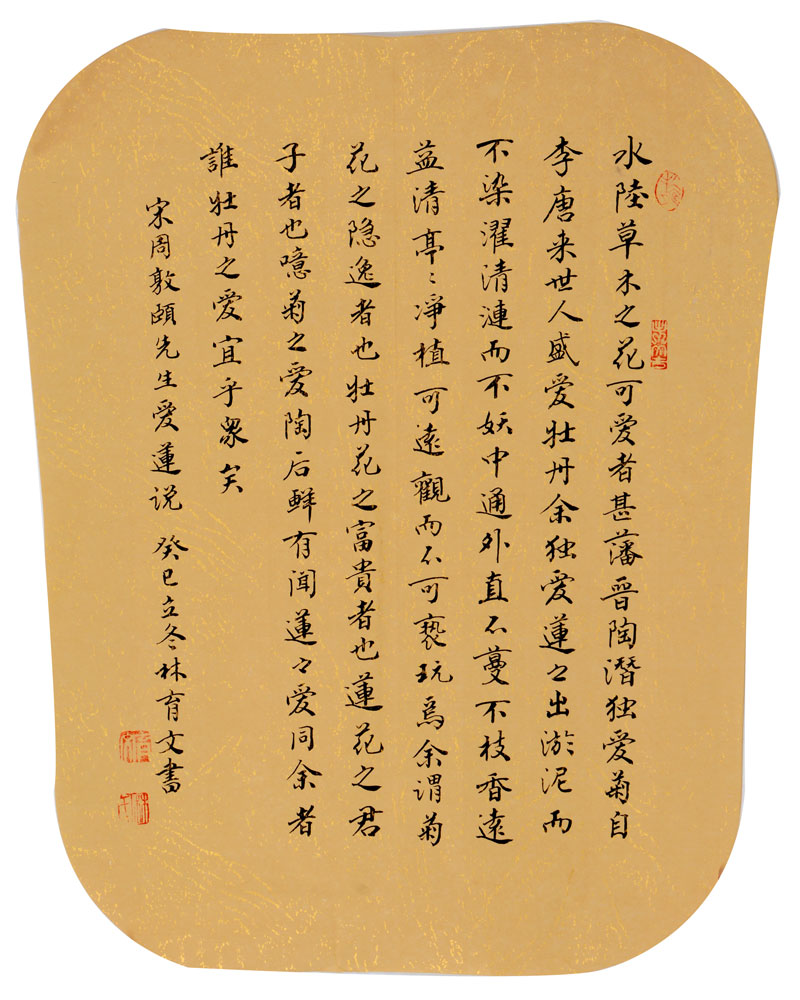 水陸草木之花可爱者甚藩晉陶潛独爱菊自
李唐来世人盛爱牡丹余独爱蓮之出淤泥而
不染濯清漣而不妖中通外直不蔓不枝香遠
益清亭〻凈植可遠觀而不可亵玩焉余谓菊
花之隐逸者也牡丹花之富貴者也蓮花之君
子者也噫菊之爱陶后鲜有闻蓮之爱同余者
誰牡丹之爱宜乎眾矣
宋周敦頤先生爱蓮说 癸巳立冬林育文書